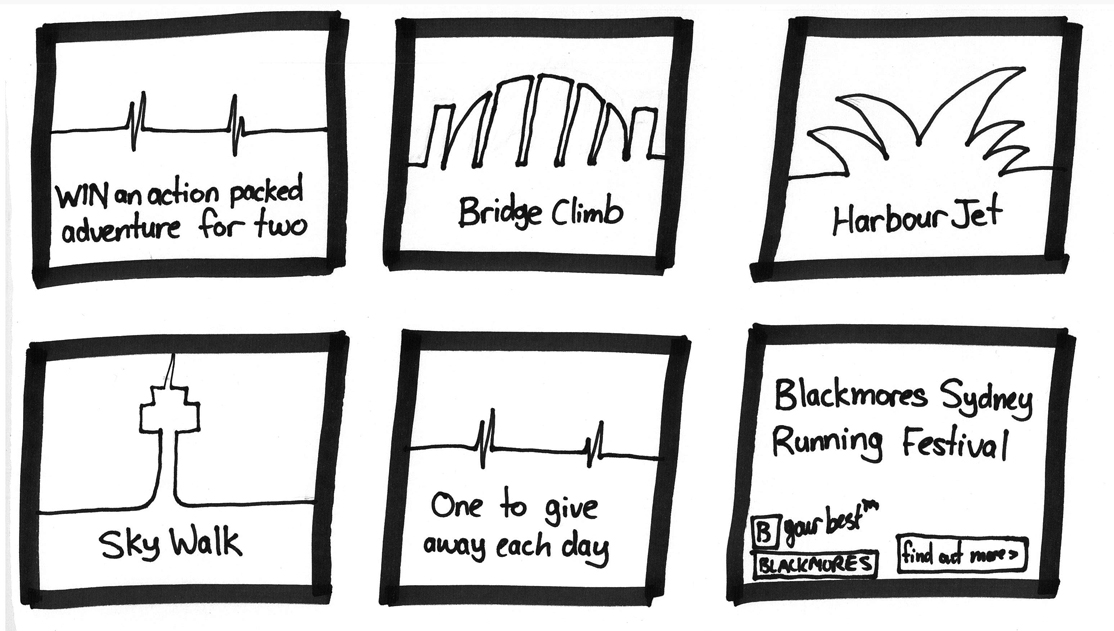 WIN an action packed
adventure for two
Bridge Climb
Harbour Jet
Sky Walk
One to give
away each day
Blackmores Sydney
Running Festival
B your best™
BLACKMORES
find out more >